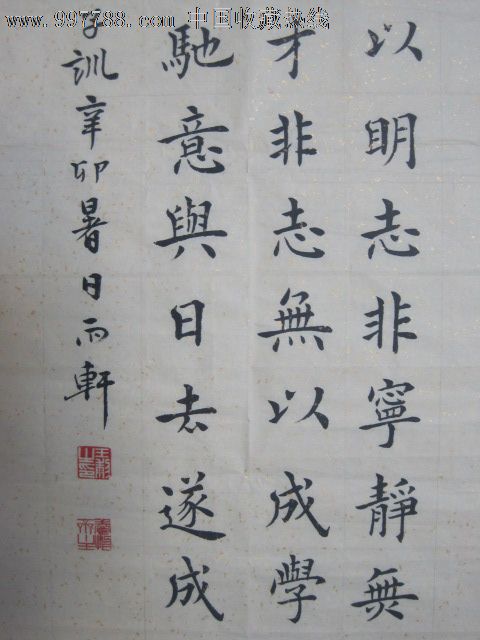 www.997788.com 中国收藏热线
以明志非寧靜無
才非志無以成學
馳意與日去遂成
子訓辛卯暑日雨軒